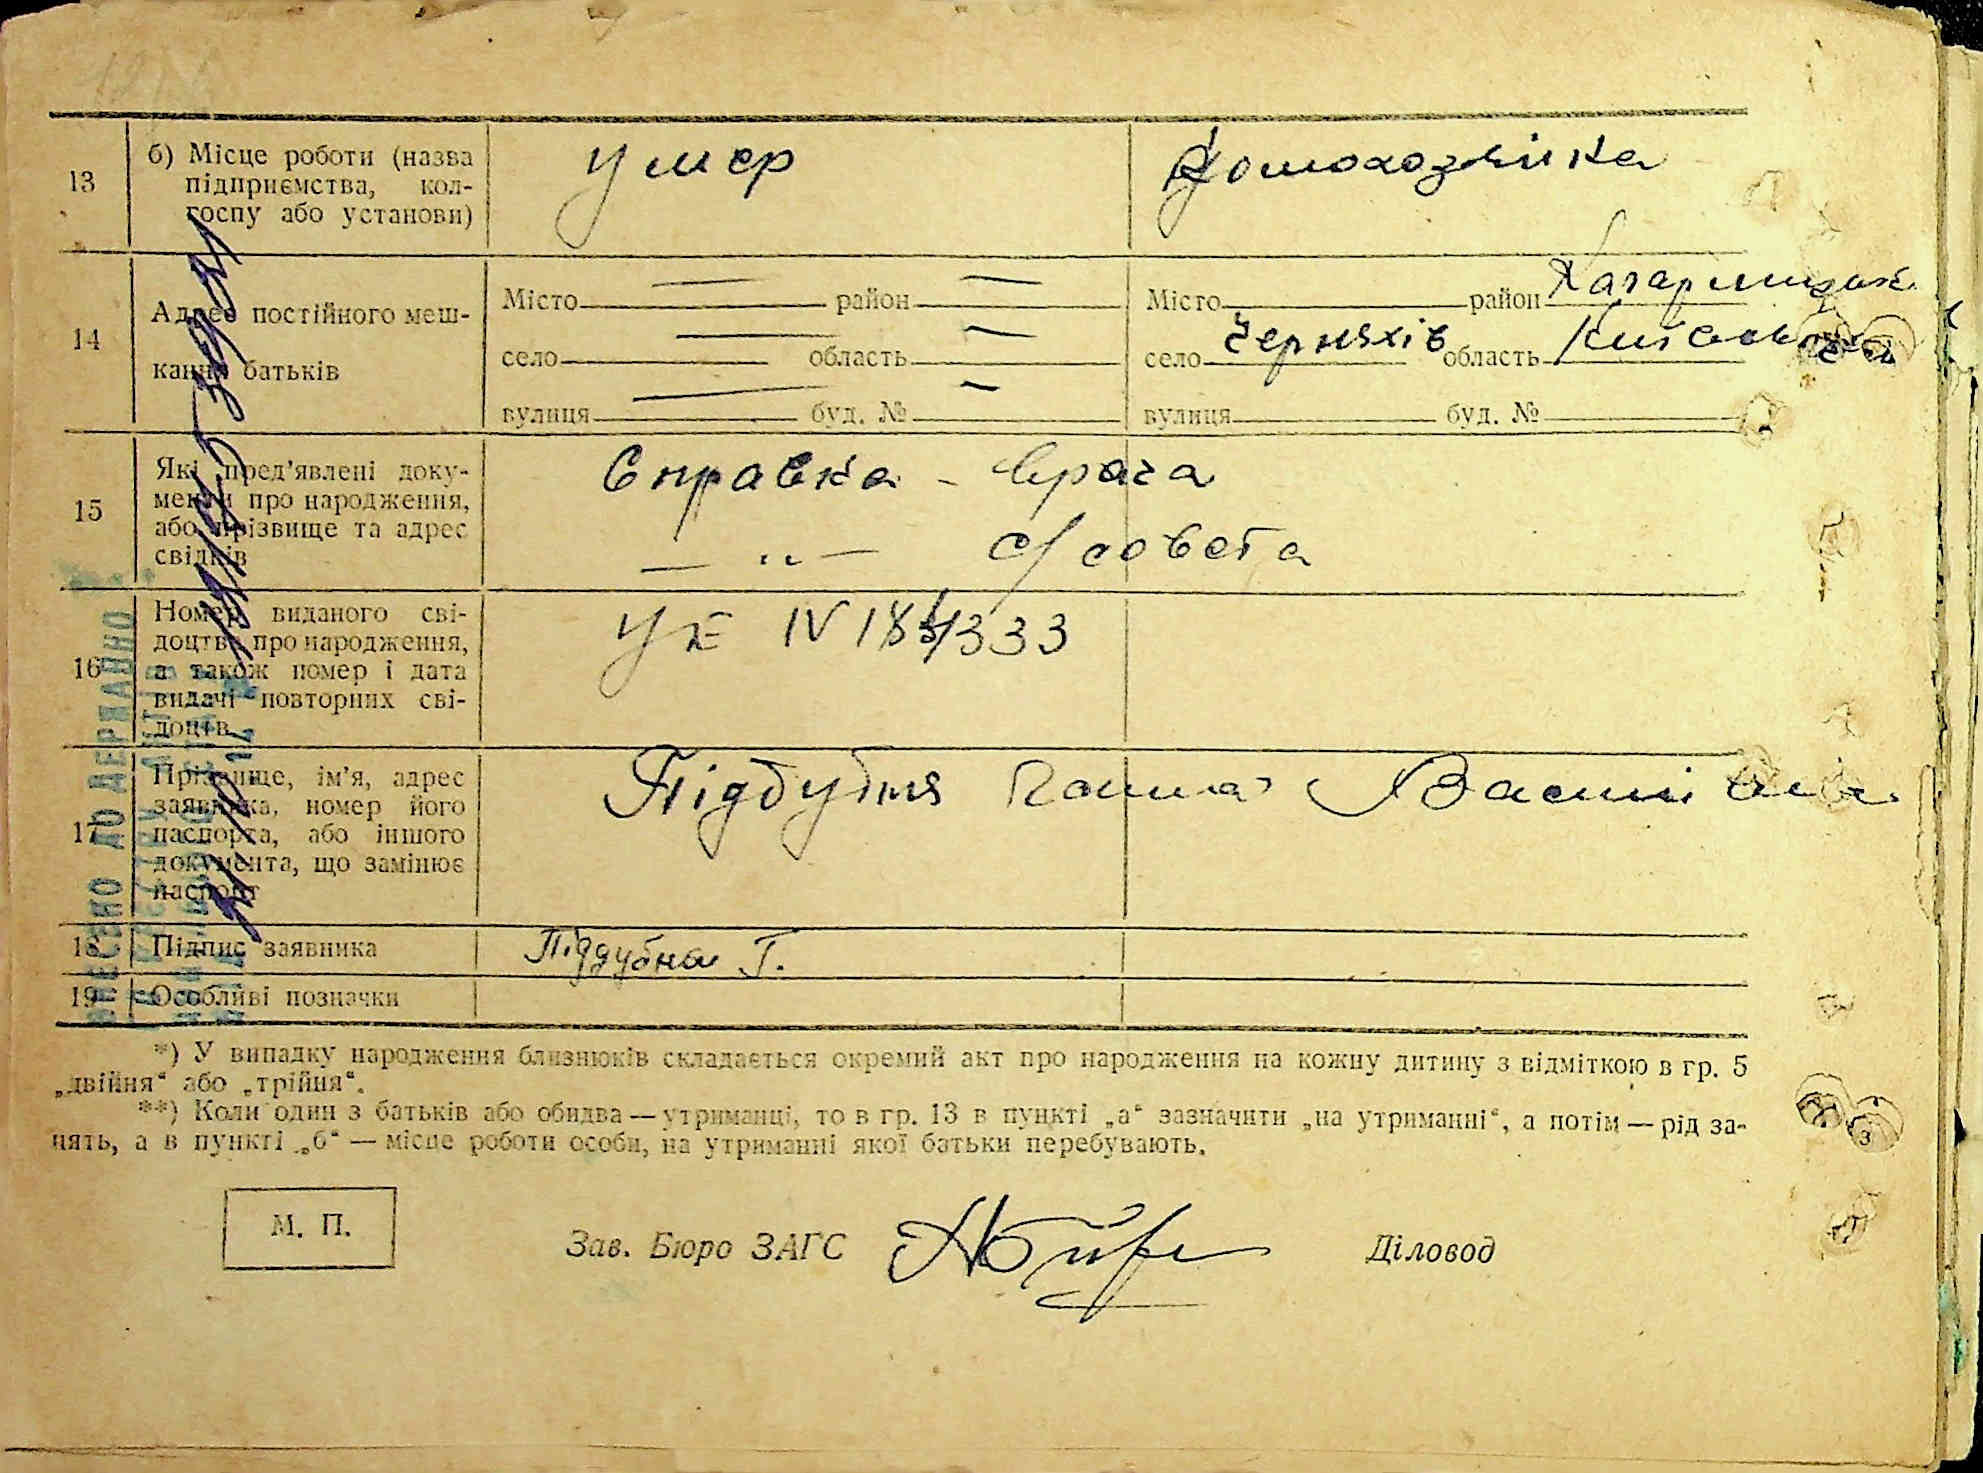 13 б) Місце роботи (назва підприємства, колгоспу або установи) Умер Домохозяйка
14 Адрес постійного мешкання батьків
Місто район Місто район Кагарлицьк.
село область село Черняхів область Київська
вулиця буд. № вулиця буд. №
15 Які пред'явлені документи про народження, або прізвище та адрес свідків
Справка - врача
— „ — с/совета
16 Номер виданого свідоцтва про народження, а також номер і дата видачі повторних свідоцтв
УЖ IV 184333
17 Прізвище, ім'я, адрес заявника, номер його паспорта, або іншого документа, що замінює паспорт
Піддубня Ганна Василівна
18 Підпис заявника Піддубна Г.
19 Особливі позначки
ВНЕСЕНО ДО ДЕРЖАВНО
*) У випадку народження близнюків складається окремий акт про народження на кожну дитину з відміткою в гр. 5
„двійня“ або „трійня“.
**) Коли один з батьків або обидва — утриманці, то в гр. 13 в пункті „а“ зазначити „на утриманні“, а потім — рід за-
нять, а в пункті „б“ — місце роботи особи, на утриманні якої батьки перебувають.
М. П.
Зав. Бюро ЗАГС Діловод